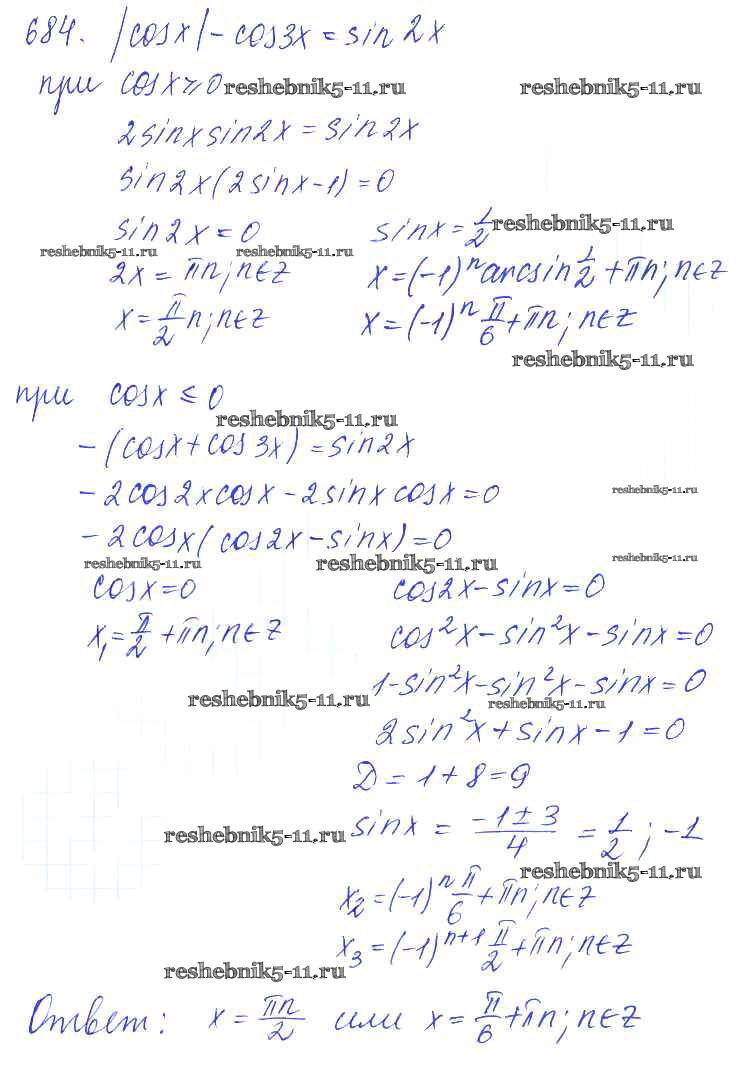 684. |cosx|-cos3x=sin2x
при cosx≥0 reshebnik5-11.ru reshebnik5-11.ru
2sinxsin2x=sin2x
sin2x(2sinx-1)=0
sin2x=0 sinx=1/2 reshebnik5-11.ru
reshebnik5-11.ru reshebnik5-11.ru
2x=πn; n∈Z x=(-1)^n arcsin 1/2 +πn; n∈Z
x=π/2 n; n∈Z x=(-1)^n π/6+πn; n∈Z
reshebnik5-11.ru
при cosx≤0
reshebnik5-11.ru
-(cosx+cos3x)=sin2x
-2cos2xcosx-2sinxcosx=0 reshebnik5-11.ru
-2cosx(cos2x-sinx)=0
reshebnik5-11.ru reshebnik5-11.ru reshebnik5-11.ru
cosx=0 cos2x-sinx=0
x₁=π/2+πn; n∈Z cos²x-sin²x-sinx=0
1-sin²x-sin²x-sinx=0
reshebnik5-11.ru reshebnik5-11.ru
2sin²x+sinx-1=0
D=1+8=9
reshebnik5-11.ru sinx=(-1±3)/4=1/2; -1
reshebnik5-11.ru
x₂=(-1)^n π/6+πn; n∈Z
x₃=(-1)^(n+1) π/2+πn; n∈Z
reshebnik5-11.ru
Ответ: x=πn/2 или x=π/6+πn; n∈Z